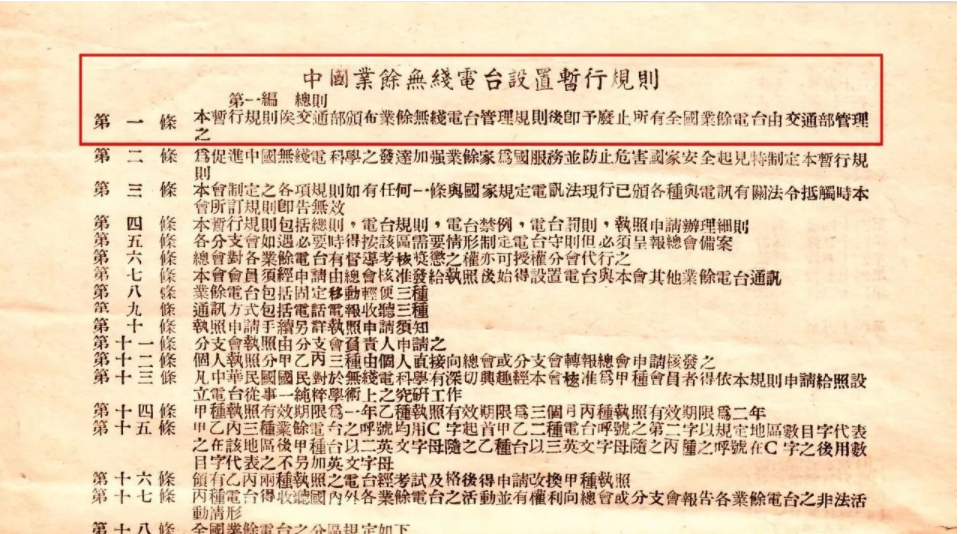 中國業餘無綫電台設置暫行規則
第一編 總則
第一條 本暫行規則俟交通部頒布業餘無綫電台管理規則後卽予廢止所有全國業餘電台由交通部管理
之
第二條 爲促進中國無綫電科學之發達加强業餘家爲國服務並防止危害國家安全起見特制定本暫行規
則
第三條 本會制定之各項規則如有任何一條與國家規定電訊法現行已頒各種與電訊有關法令抵觸時本
會所訂規則卽告無效
第四條 本暫行規則包括總則，電台規則，電台禁例，電台罰則，執照申請辦理細則
第五條 各分支會如遇必要時得按該區需要情形制定電台守則但必須呈報總會備案
第六條 總會對各業餘電台有督導考核獎懲之權亦可授權分會代行之
第七條 本會會員須經申請由總會核准發給執照後始得設置電台與本會其他業餘電台通訊
第八條 業餘電台包括固定移動輕便三種
第九條 通訊方式包括電話電報收聽三種
第十條 執照申請手續另詳執照申請須知
第十一條 分支會執照由分支會負責人申請之
第十二條 個人執照分甲乙丙三種由個人直接向總會或分支會轉報總會申請核發之
第十三條 凡中華民國國民對於無綫電科學有深切興趣經本會核准爲甲種會員者得依本規則申請給照設
立電台從事一純粹學術上之究研工作
第十四條 甲種執照有效期限爲一年乙種執照有效期限爲三個月丙種執照有效期限爲二年
第十五條 甲乙丙三種業餘電台之呼號均用C字起首甲乙二種電台呼號之第二字以規定地區數目字代表
之在該地區後甲種台以二英文字母隨之乙種台以三英文字母隨之丙種之呼號在C字之後用數
目字代表之不另加英文字母
第十六條 領有乙丙兩種執照之電台經考試及格後得申請改換甲種執照
第十七條 丙種電台得收聽國內外各業餘電台之活動並有權利向總會或分支會報告各業餘電台之非法活
動情形
第十八條 全國業餘電台之分區規定如下